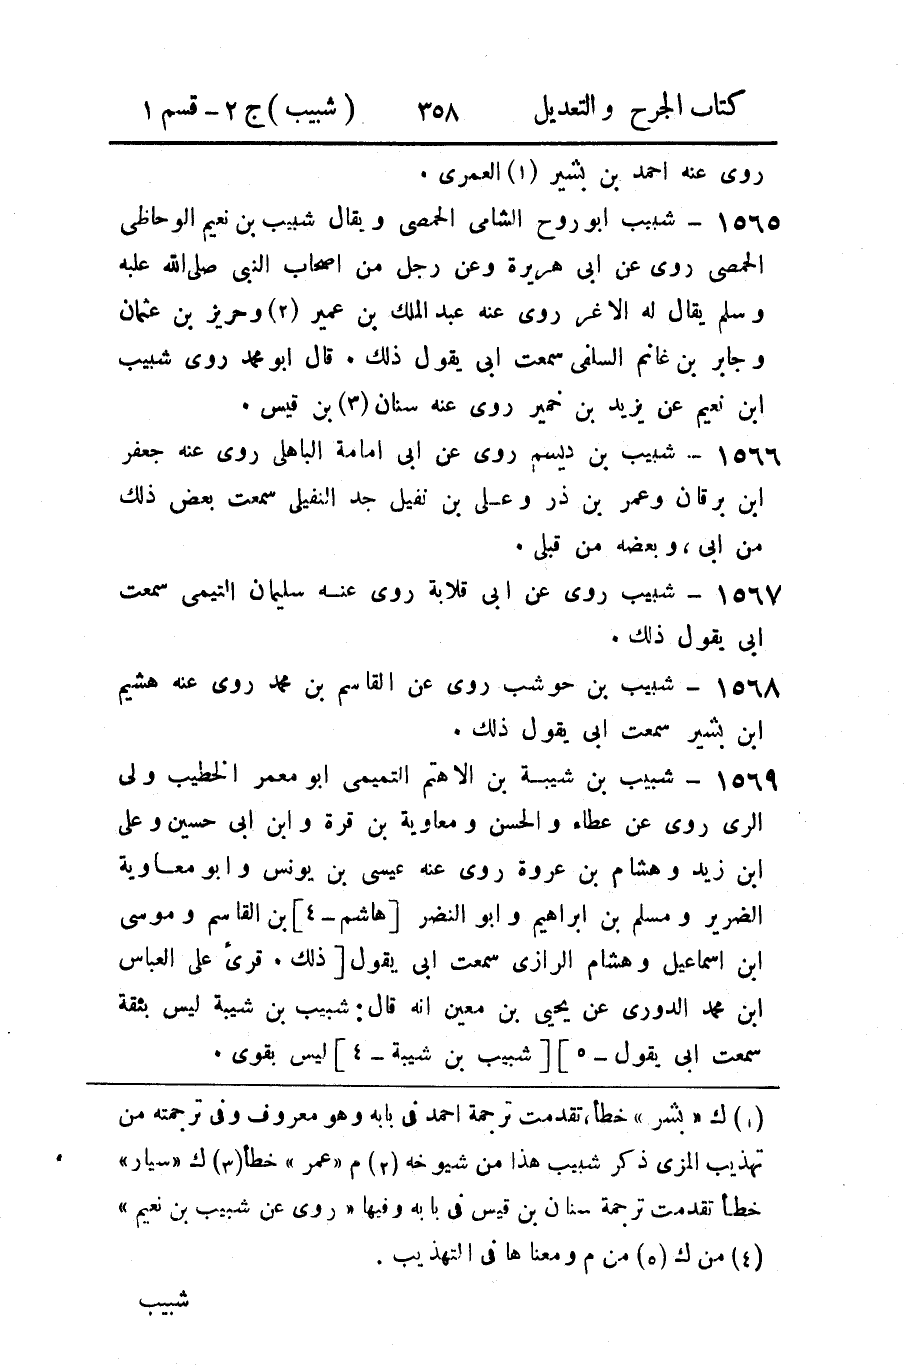 كتاب الجرح والتعديل ٣٥٨ (شبيب) ج ٢ - قسم ١
روى عنه احمد بن بشير (١) العمرى ٠
١٥٦٥ - شبيب ابو روح الشامى الحمصى ويقال شبيب بن نعيم الوحاظى
الحمصى روى عن ابى هريرة وعن رجل من اصحاب النبى صلى الله عليه
وسلم يقال له الاغر روى عنه عبد الملك بن عمير (٢) وحريز بن عثمان
وجابر بن غانم السلفى سمعت ابى يقول ذلك ٠ قال ابو محمد روى شبيب
ابن نعيم عن يزيد بن خمير روى عنه سنان (٣) بن قيس ٠
١٥٦٦ - شبيب بن ديسم روى عن ابى امامة الباهلى روى عنه جعفر
ابن برقان وعمر بن ذر وعلى بن نفيل جد النفيلى سمعت بعض ذلك
من ابى ، وبعضه من قبلى ٠
١٥٦٧ - شبيب روى عن ابى قلابة روى عنه سليمان التيمى سمعت
ابى يقول ذلك ٠
١٥٦٨ - شبيب بن حوشب روى عن القاسم بن محمد روى عنه هشيم
ابن بشير سمعت ابى يقول ذلك ٠
١٥٦٩ - شبيب بن شيبة بن الاهتم التميمى ابو معمر الخطيب ولى
الرى روى عن عطاء والحسن ومعاوية بن قرة وابن ابى حسين وعلى
ابن زيد وهشام بن عروة روى عنه عيسى بن يونس وابو معاوية
الضرير ومسلم بن ابراهيم وابو النضر [هاشم - ٤] بن القاسم وموسى
ابن اسماعيل وهشام الرازى سمعت ابى يقول [ذلك ٠ قرئ على العباس
ابن محمد الدورى عن يحيى بن معين انه قال : شبيب بن شيبة ليس بثقة
سمعت ابى يقول - ٥] [شبيب بن شيبة - ٤] ليس بقوى ٠
(١) ك «بشر» خطأ، تقدمت ترجمة احمد فى بابه وهو معروف وفى ترجمته من
تهذيب المزى ذكر شبيب هذا من شيوخه (٢) م «عمر» خطأ (٣) ك «سيار»
خطأ تقدمت ترجمة سنان بن قيس فى بابه وفيها «روى عن شبيب بن نعيم»
(٤) من ك (٥) من م ومعناها فى التهذيب .
شبيب